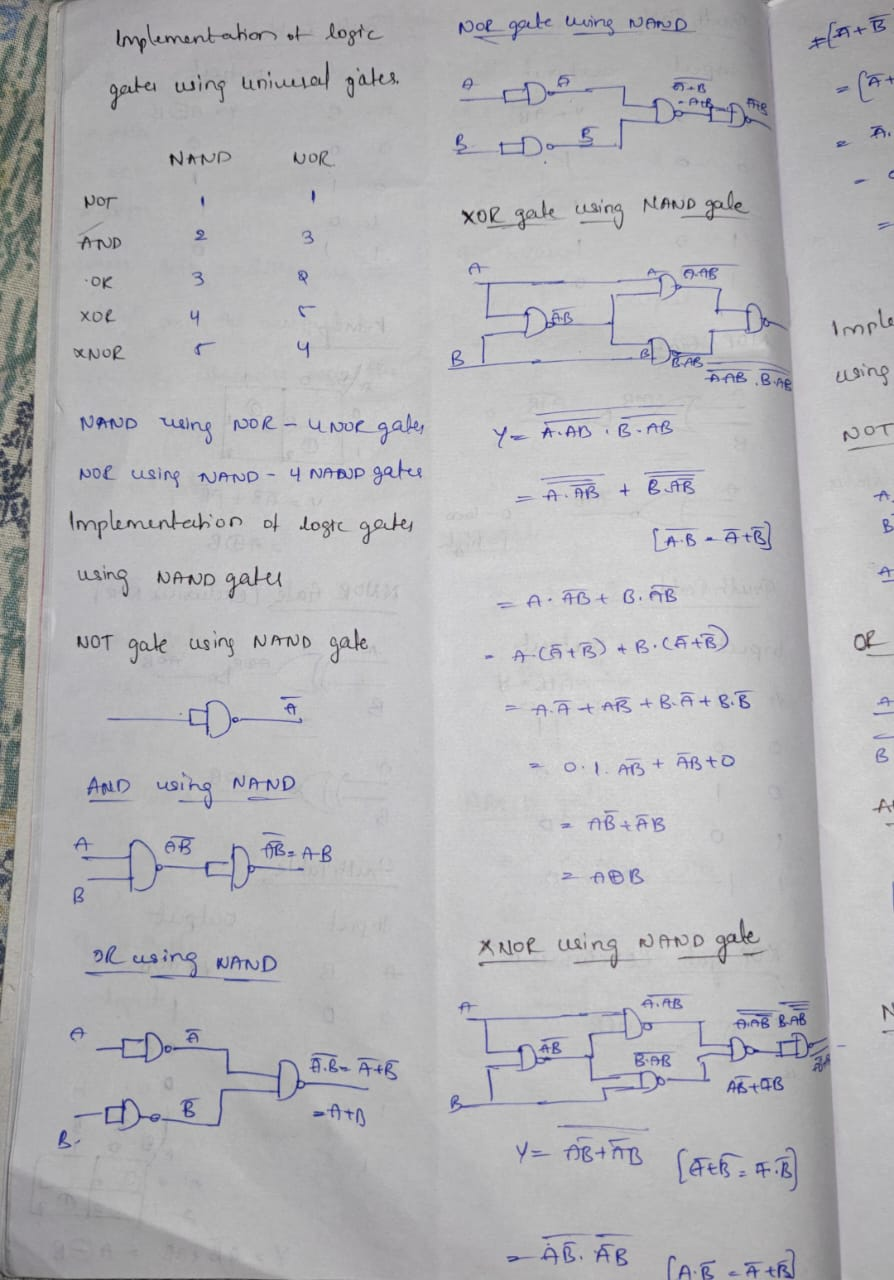 Implementation of logic
gates using universal gates.
NAND NOR
NOT 1 1
AND 2 3
OR 3 2
XOR 4 5
XNOR 5 4
NAND using NOR - 4 NOR gates
NOR using NAND - 4 NAND gates
Implementation of logic gates
using NAND gates
NOT gate using NAND gate
A̅
AND using NAND
A
B
A̅B̅
A̅B̅ = A·B
OR using NAND
A
A̅
B
B̅
A̅.B̅ = A̅+B̅
= A+B
NOR gate using NAND
A
A̅
B
B̅
A+B
XOR gate using NAND gate
A
B
A̅B̅
A
A.AB
B
B.AB
A.AB . B.AB
Y = A.AB . B.AB
= A.AB + B.AB
[A.B = A̅+B̅]
= A. AB + B. AB
= A.(A̅+B̅) + B.(A̅+B̅)
= A.A̅ + AB̅ + B.A̅ + B.B̅
= 0.1. AB̅ + A̅B + 0
= AB̅ + A̅B
= A⊕B
XNOR using NAND gate
A
B
AB
A.AB
B.AB
A.AB B.AB
AB̅ + A̅B
Y = AB̅ + A̅B [A̅+B̅ = A̅.B̅]
= AB̅. A̅B [A.B = A̅+B̅]
+[A̅+B̅
= (A̅+
= A̅.
=
Imple
using
NOT
A
B
A
OR
A
B